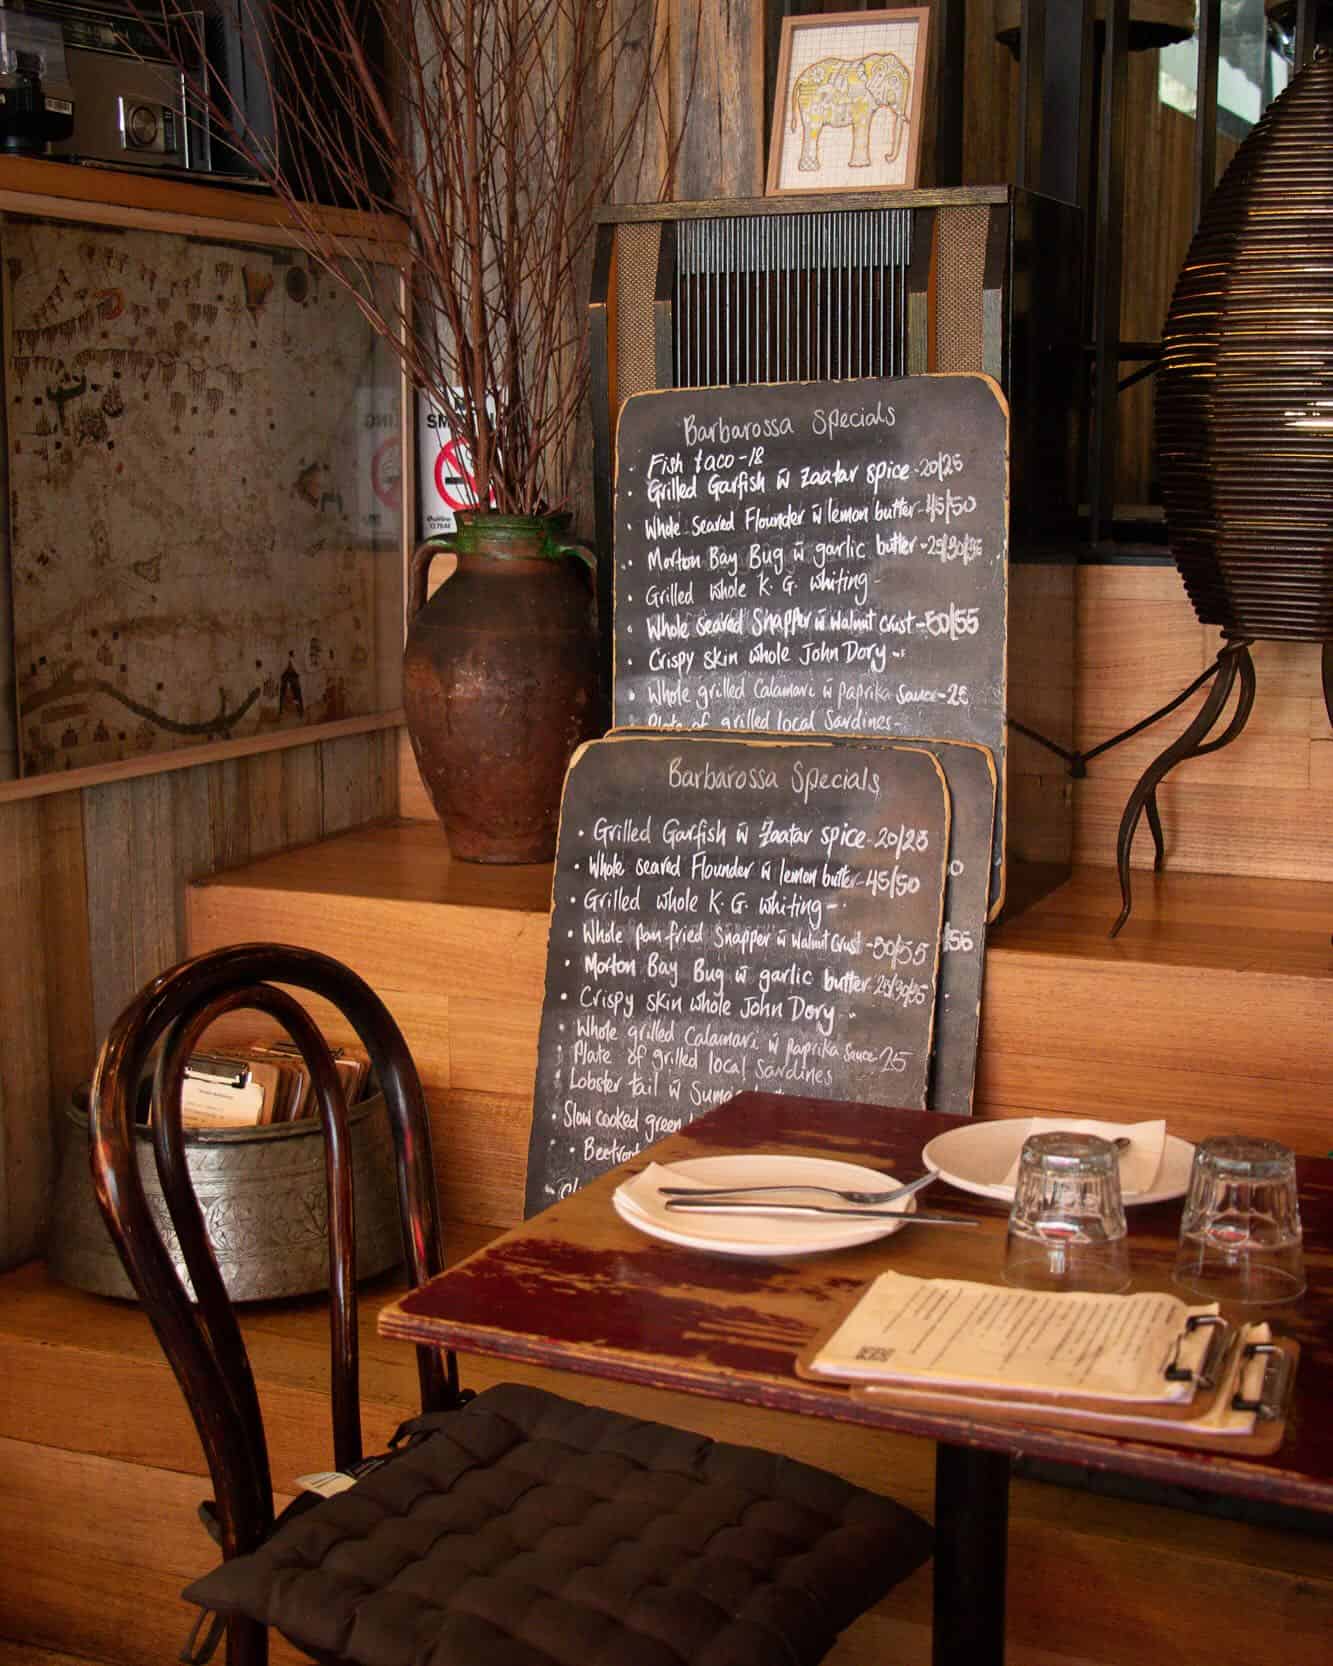 Barbarossa Specials
• Fish taco - 18
• Grilled Garfish w̄ Zaatar spice - 20/25
• Whole seared Flounder w̄ lemon butter - 45/50
• Morton Bay Bug w̄ garlic butter - 25/30/35
• Grilled whole K. G. whiting -
• Whole seared Snapper w̄ walnut crust - 50/55
• Crispy skin whole John Dory -
• Whole grilled Calamari w̄ Paprika Sauce - 25
Plate of grilled local Sardines -
Barbarossa Specials
• Grilled Garfish w̄ Zaatar spice - 20/25
• Whole seared Flounder w̄ lemon butter - 45/50
• Grilled whole K. G. whiting -
• Whole pan fried Snapper w̄ walnut crust - 50/55
• Morton Bay Bug w̄ garlic butter - 25/30/35
• Crispy skin whole John Dory
• Whole grilled Calamari w̄ Paprika Sauce - 25
• Plate of grilled local Sardines
• Lobster tail w̄
• Slow cooked green
• Beetroot